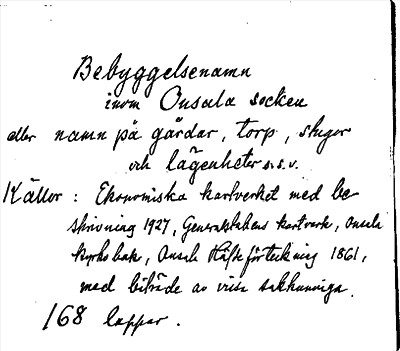 Bebyggelsenamn
inom Onsala socken
eller namn på gårdar, torp, stugor
och lägenheter o.s.v.
Källor: Ekonomiska kartverket med be
skrivning 1927, Generalstabens kartverk, Onsala
kyrkobok, Onsala Häfteförteckning 1861,
med biträde av vissa sakkunniga.
168 lappar.